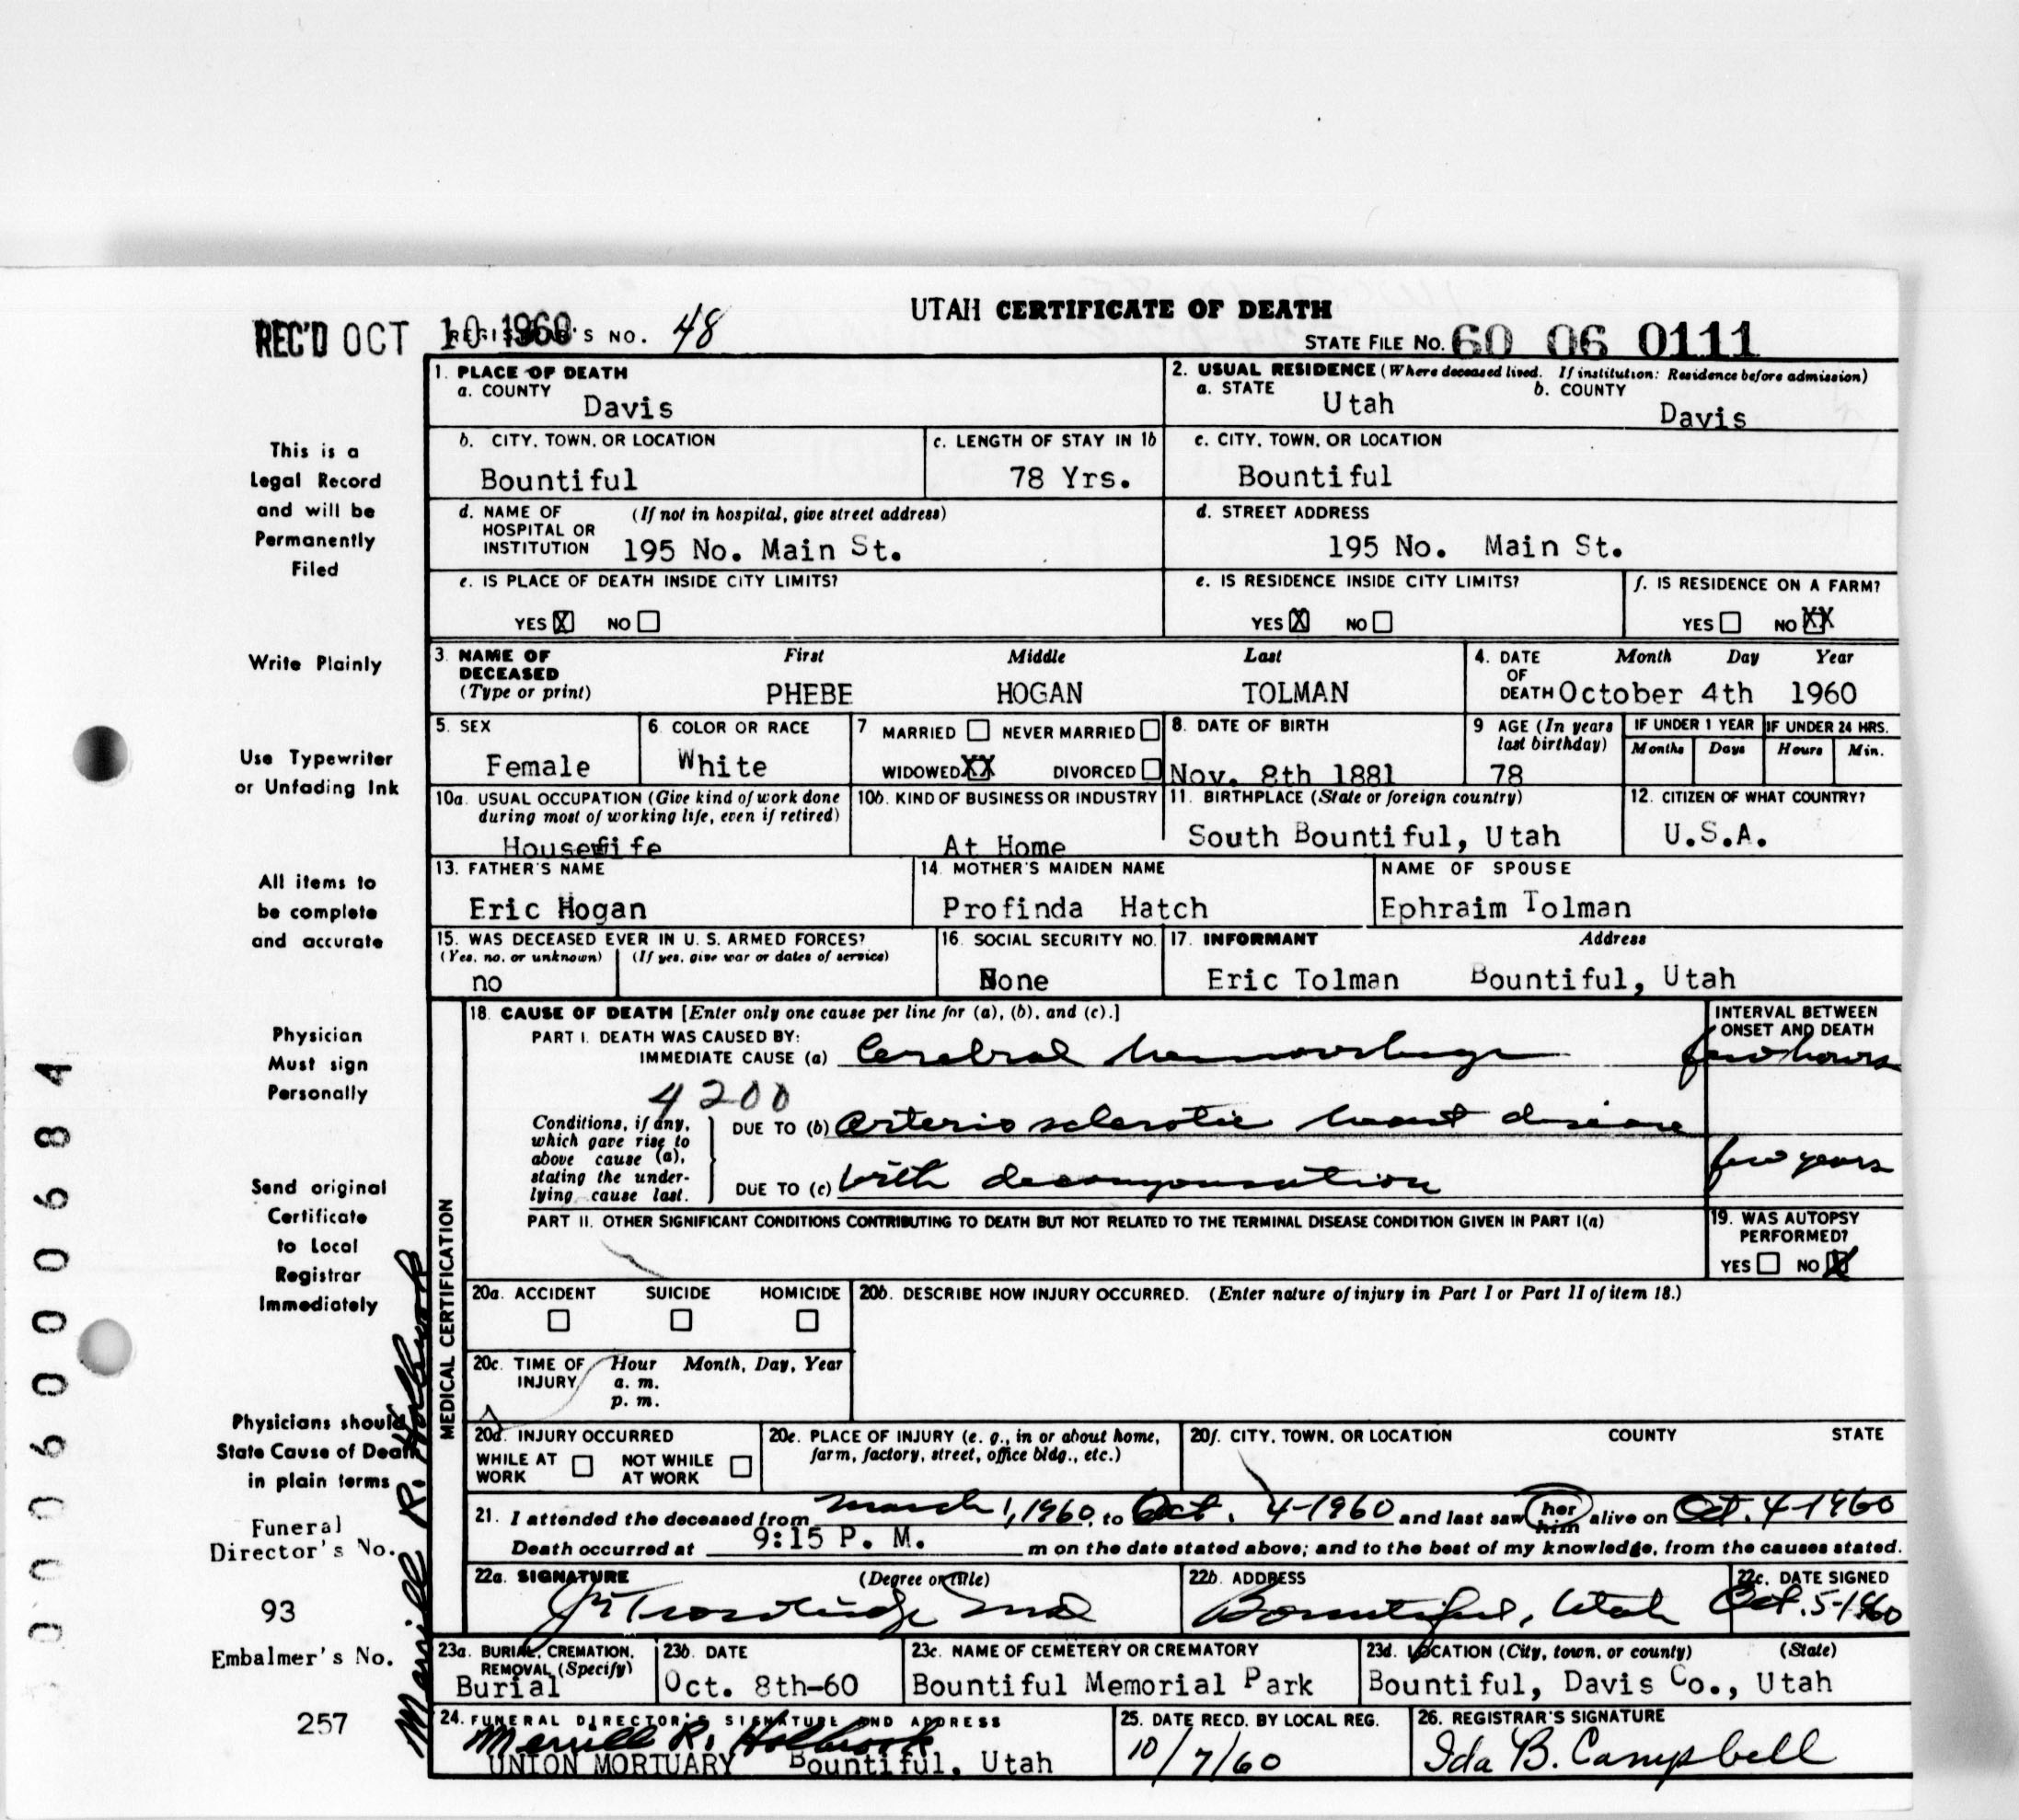 UTAH CERTIFICATE OF DEATH
REC'D OCT 10 1960 REGISTRAR'S NO. 48
STATE FILE NO. 60 06 0111
1. PLACE OF DEATH
a. COUNTY
Davis
2. USUAL RESIDENCE (Where deceased lived. If institution: Residence before admission)
a. STATE Utah b. COUNTY Davis
b. CITY, TOWN, OR LOCATION
Bountiful
c. LENGTH OF STAY IN 1b
78 Yrs.
c. CITY, TOWN, OR LOCATION
Bountiful
d. NAME OF HOSPITAL OR INSTITUTION (If not in hospital, give street address)
195 No. Main St.
d. STREET ADDRESS
195 No. Main St.
e. IS PLACE OF DEATH INSIDE CITY LIMITS?
YES X NO
e. IS RESIDENCE INSIDE CITY LIMITS?
YES X NO
f. IS RESIDENCE ON A FARM?
YES NO XX
3. NAME OF DECEASED (Type or print)
First Middle Last
PHEBE HOGAN TOLMAN
4. DATE OF DEATH Month Day Year
October 4th 1960
5. SEX
Female
6. COLOR OR RACE
White
7 MARRIED NEVER MARRIED
WIDOWED XX DIVORCED
8. DATE OF BIRTH
Nov. 8th 1881
9 AGE (In years last birthday)
78
IF UNDER 1 YEAR IF UNDER 24 HRS.
Months Days Hours Min.
10a. USUAL OCCUPATION (Give kind of work done during most of working life, even if retired)
Housewife
10b. KIND OF BUSINESS OR INDUSTRY
At Home
11. BIRTHPLACE (State or foreign country)
South Bountiful, Utah
12. CITIZEN OF WHAT COUNTRY?
U.S.A.
13. FATHER'S NAME
Eric Hogan
14. MOTHER'S MAIDEN NAME
Profinda Hatch
NAME OF SPOUSE
Ephraim Tolman
15. WAS DECEASED EVER IN U. S. ARMED FORCES?
(Yes, no, or unknown) (If yes, give war or dates of service)
no
16. SOCIAL SECURITY NO.
None
17. INFORMANT Address
Eric Tolman Bountiful, Utah
MEDICAL CERTIFICATION
18. CAUSE OF DEATH [Enter only one cause per line for (a), (b), and (c).]
INTERVAL BETWEEN ONSET AND DEATH
PART I. DEATH WAS CAUSED BY:
IMMEDIATE CAUSE (a) Cerebral hemorrhage few hours
4200
Conditions, if any, which gave rise to above cause (a), stating the underlying cause last.
DUE TO (b) Arterio sclerotic heart disease
DUE TO (c) with decompensation few years
PART II. OTHER SIGNIFICANT CONDITIONS CONTRIBUTING TO DEATH BUT NOT RELATED TO THE TERMINAL DISEASE CONDITION GIVEN IN PART I(a)
19. WAS AUTOPSY PERFORMED?
YES NO X
20a. ACCIDENT SUICIDE HOMICIDE
20b. DESCRIBE HOW INJURY OCCURRED. (Enter nature of injury in Part I or Part II of item 18.)
20c. TIME OF INJURY Hour Month, Day, Year
a. m.
p. m.
20d. INJURY OCCURRED
WHILE AT WORK NOT WHILE AT WORK
20e. PLACE OF INJURY (e. g., in or about home, farm, factory, street, office bldg., etc.)
20f. CITY, TOWN, OR LOCATION COUNTY STATE
21. I attended the deceased from March 1, 1960, to Oct. 4-1960 and last saw her him alive on Oct. 4-1960
Death occurred at 9:15 P. M. m on the date stated above; and to the best of my knowledge, from the causes stated.
22a. SIGNATURE (Degree or title)
22b. ADDRESS
Bountiful, Utah
22c. DATE SIGNED
Oct. 5-1960
23a. BURIAL, CREMATION, REMOVAL (Specify)
Burial
23b. DATE
Oct. 8th-60
23c. NAME OF CEMETERY OR CREMATORY
Bountiful Memorial Park
23d. LOCATION (City, town, or county) (State)
Bountiful, Davis Co., Utah
24. FUNERAL DIRECTOR'S SIGNATURE AND ADDRESS
Merrill R. Holbrook
UNION MORTUARY Bountiful, Utah
25. DATE RECD. BY LOCAL REG.
10/7/60
26. REGISTRAR'S SIGNATURE
Ida B. Campbell
This is a
Legal Record
and will be
Permanently
Filed
Write Plainly
Use Typewriter
or Unfading Ink
All items to
be complete
and accurate
Physician
Must sign
Personally
Send original
Certificate
to Local
Registrar
Immediately
Physicians should
State Cause of Death
in plain terms
Funeral
Director's No.
93
Embalmer's No.
257
Merrill R. Holbrook
000600684